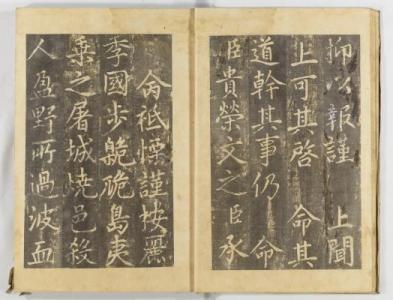 抑以報謹　上聞
上可其啓　命其
道幹其事仍　命
臣貴榮文之臣承
命祗慄謹按麗
季國步臲卼島夷
乘之屠城燒邑殺
人盈野所過波血